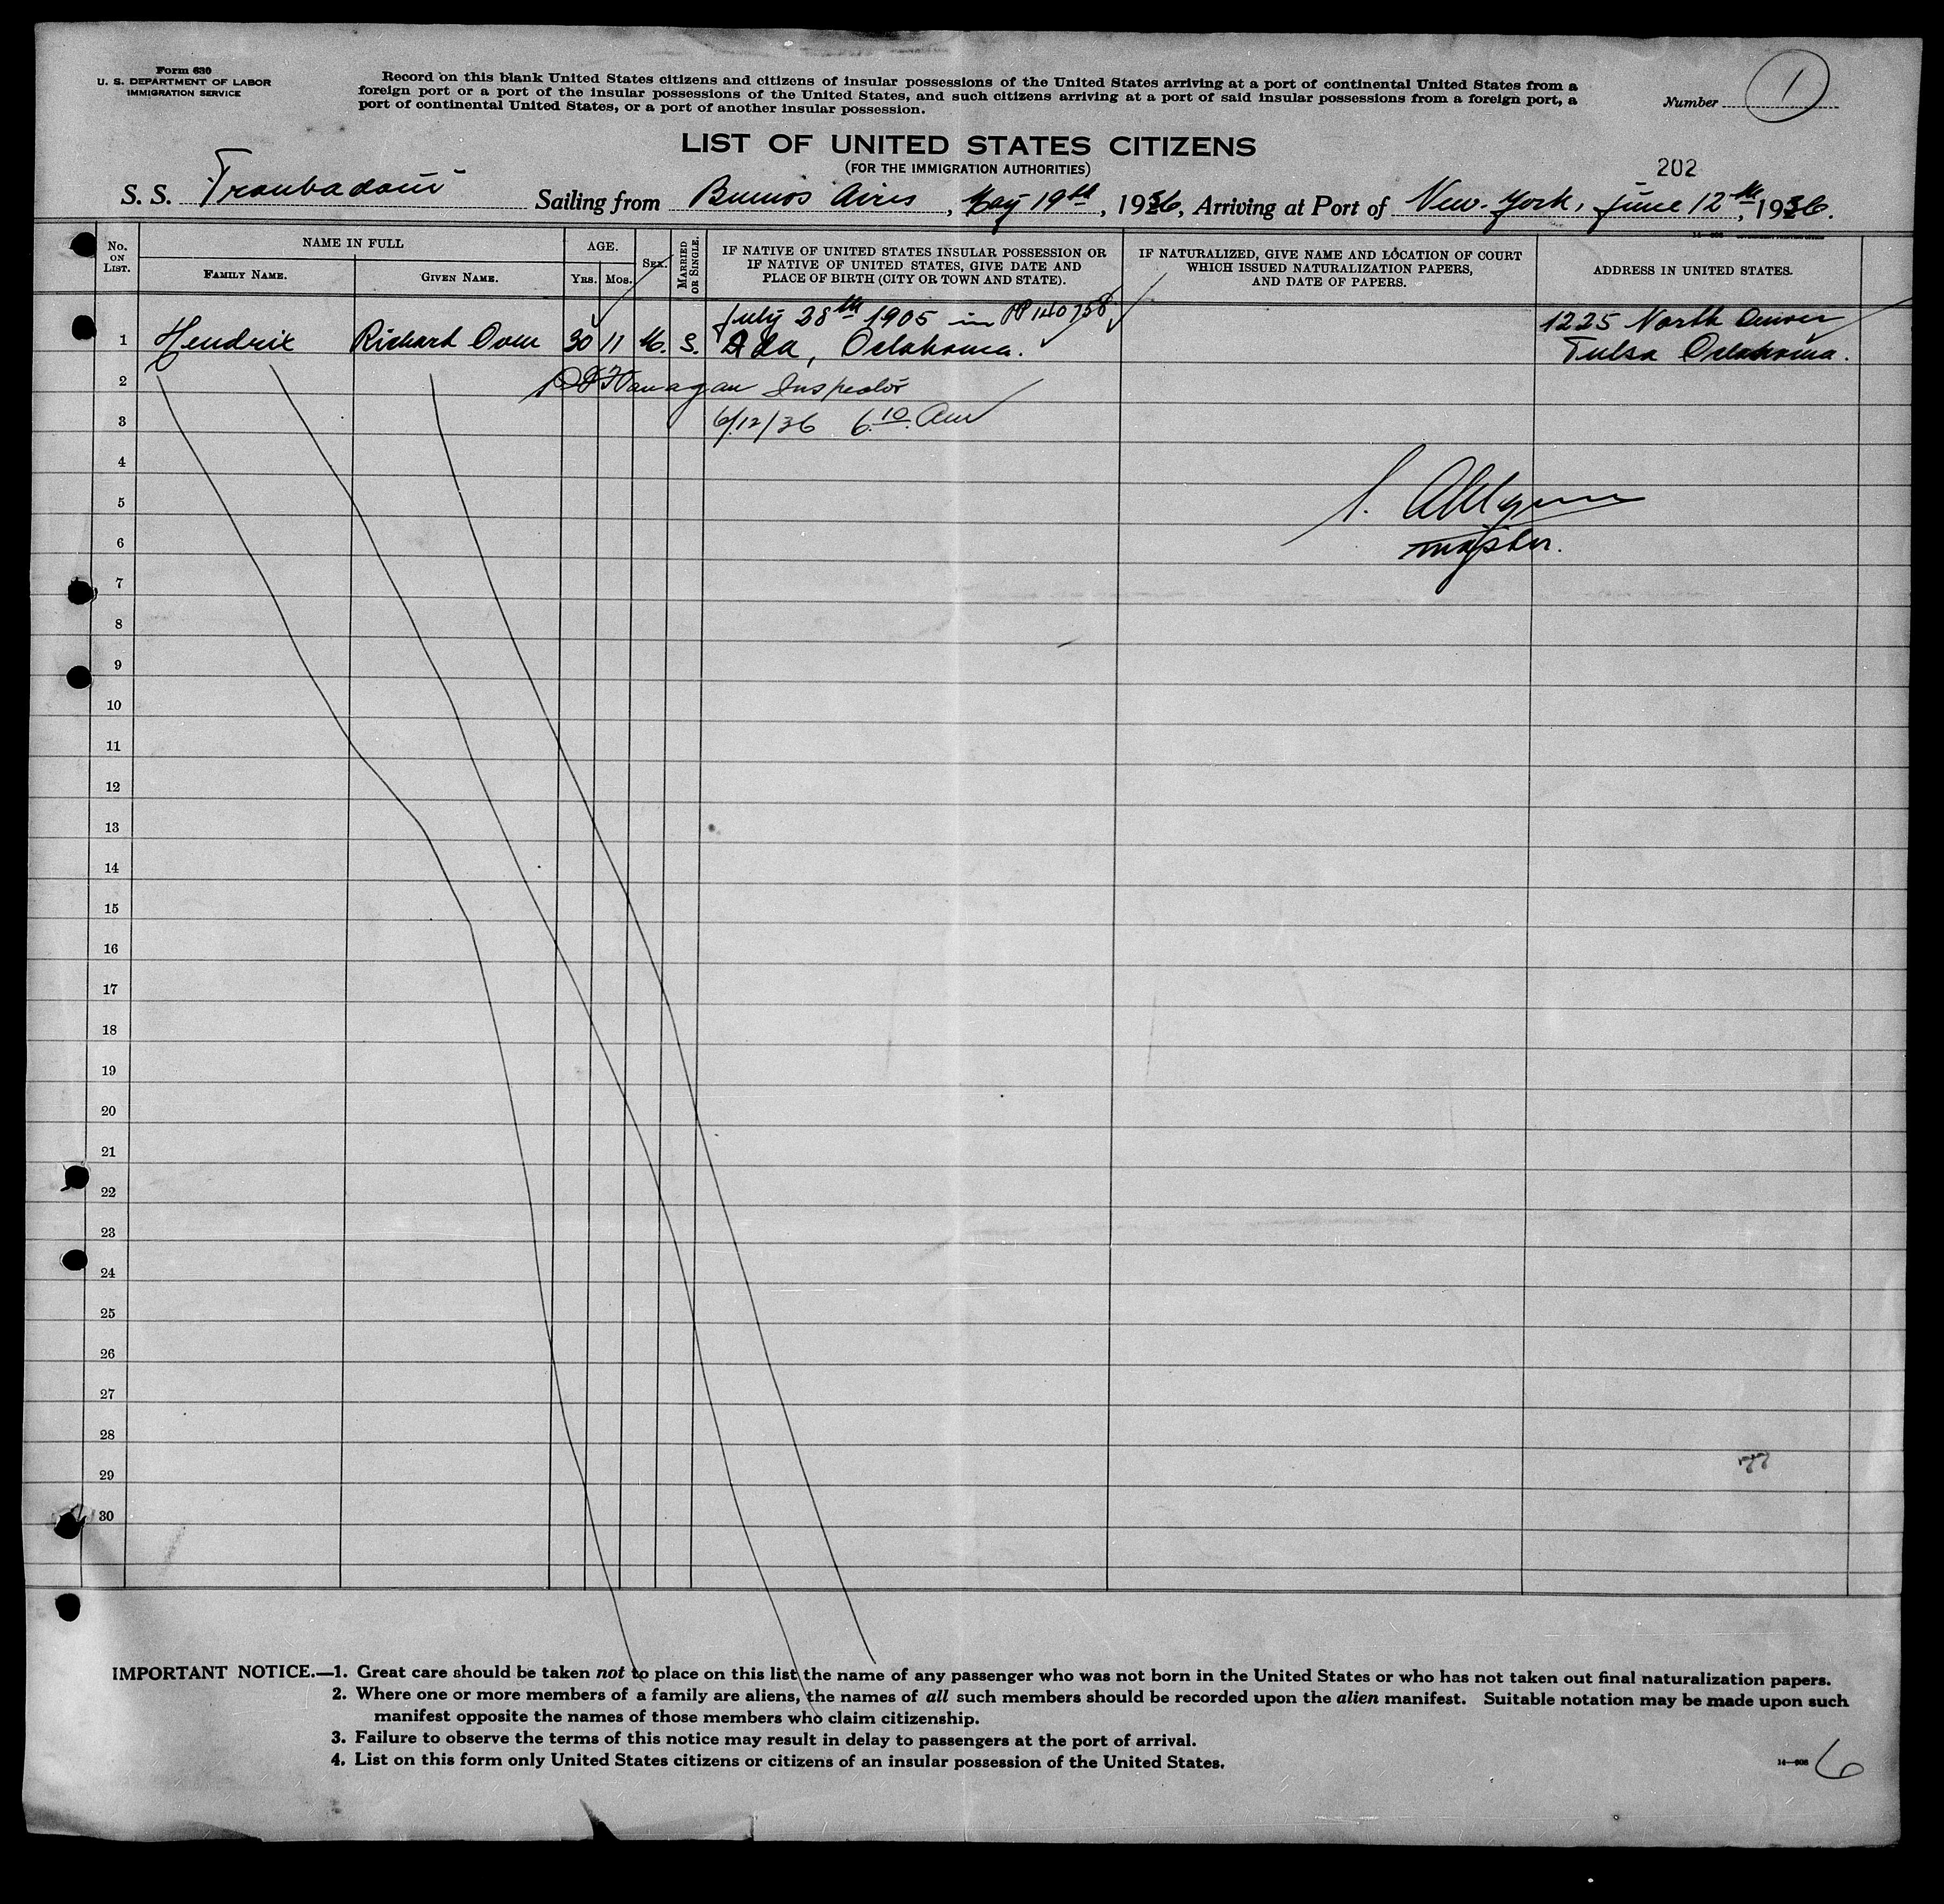 Form 630
U. S. DEPARTMENT OF LABOR
IMMIGRATION SERVICE
Record on this blank United States citizens and citizens of insular possessions of the United States arriving at a port of continental United States from a
foreign port or a port of the insular possessions of the United States, and such citizens arriving at a port of said insular possessions from a foreign port, a
port of continental United States, or a port of another insular possession.
Number 1
LIST OF UNITED STATES CITIZENS
(FOR THE IMMIGRATION AUTHORITIES)
202
S. S. Troubadour Sailing from Buenos Aires, May 19th, 1936, Arriving at Port of New-York, June 12th, 1936.
No. ON LIST.
NAME IN FULL
FAMILY NAME.
GIVEN NAME.
AGE.
YRS. MOS.
SEX.
MARRIED OR SINGLE.
IF NATIVE OF UNITED STATES INSULAR POSSESSION OR
IF NATIVE OF UNITED STATES, GIVE DATE AND
PLACE OF BIRTH (CITY OR TOWN AND STATE).
IF NATURALIZED, GIVE NAME AND LOCATION OF COURT
WHICH ISSUED NATURALIZATION PAPERS,
AND DATE OF PAPERS.
ADDRESS IN UNITED STATES.
July 28th 1905 in PP 140758
1225 North Denver
1 Hendrix Richard Oven 30 11 M. S. Ada, Oclahoma. Tulsa Oclahoma.
2 Flanagan Inspector
3 6/12/36 6.10 Am
4
5
6 master.
7
8
9
10
11
12
13
14
15
16
17
18
19
20
21
22
23
24
25
26
27
28
29
30
77
IMPORTANT NOTICE.—1. Great care should be taken not to place on this list the name of any passenger who was not born in the United States or who has not taken out final naturalization papers.
2. Where one or more members of a family are aliens, the names of all such members should be recorded upon the alien manifest. Suitable notation may be made upon such
manifest opposite the names of those members who claim citizenship.
3. Failure to observe the terms of this notice may result in delay to passengers at the port of arrival.
4. List on this form only United States citizens or citizens of an insular possession of the United States.
6